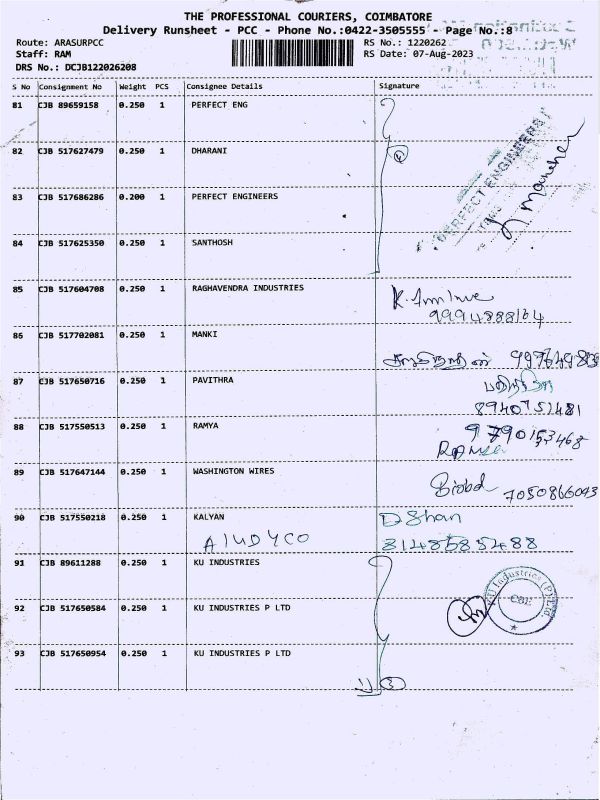 THE PROFESSIONAL COURIERS, COIMBATORE
Delivery Runsheet - PCC - Phone No.:0422-3505555 - Page No.:8
Route: ARASURPCC RS No.: 1220262
Staff: RAM RS Date: 07-Aug-2023
DRS No.: DCJB122026208
S No Consignment No Weight PCS Consignee Details Signature
81 CJB 89659158 0.250 1 PERFECT ENG
82 CJB 517627479 0.250 1 DHARANI
PERFECT ENGINEERS
83 CJB 517686286 0.200 1 PERFECT ENGINEERS
84 CJB 517625350 0.250 1 SANTHOSH
85 CJB 517604708 0.250 1 RAGHAVENDRA INDUSTRIES
86 CJB 517702081 0.250 1 MANKI
87 CJB 517650716 0.250 1 PAVITHRA
8940751481
88 CJB 517550513 0.250 1 RAMYA
9790153468
Ramya
89 CJB 517647144 0.250 1 WASHINGTON WIRES
7050866093
90 CJB 517550218 0.250 1 KALYAN
D Shan
91 CJB 89611288 0.250 1 KU INDUSTRIES
KU Industries (P) Ltd.
CBE
92 CJB 517650584 0.250 1 KU INDUSTRIES P LTD
93 CJB 517650954 0.250 1 KU INDUSTRIES P LTD